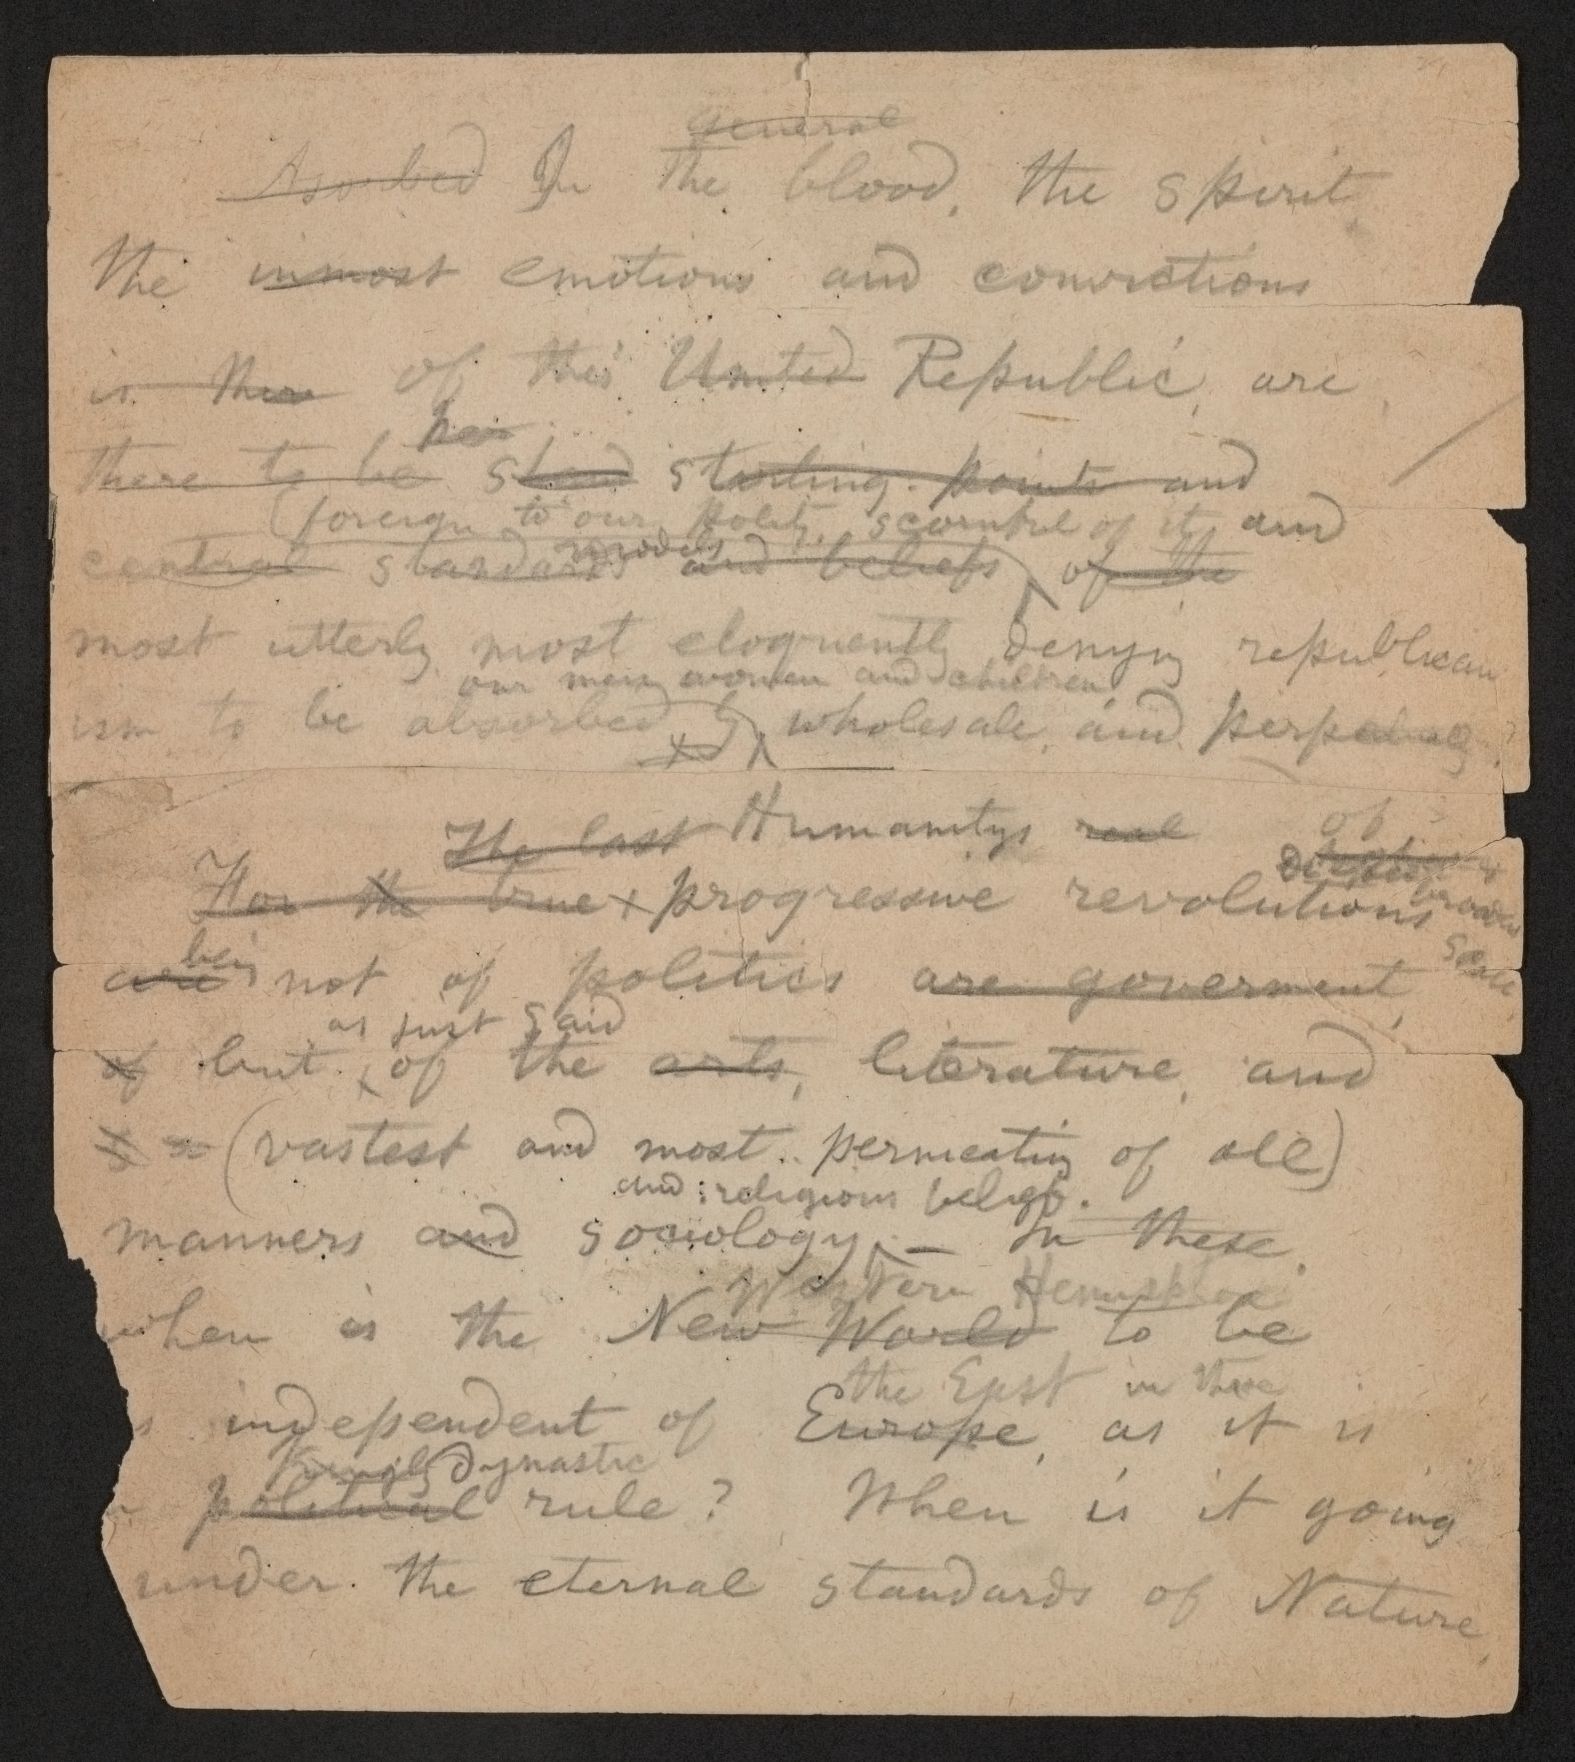 general
Absorbed In the blood, the spirit,
the inmost emotions and convictions
is there of this United Republic, are
there to be
starting-points and
(foreign to our polity, scornful of it, and
models
central standards and beliefs) of the
most utterly, most eloquently denying republican
our men, women and children
ism to be absorbed by wholesale, and perpetually?
The last Humanity's real of
For the true progressive revolutions broadest
being scale
are not of politics are goverment,
as just said
of but of the arts, literature, and
(vastest and most permeating of all)
and religious beliefs.
manners and sociology — In these
Western Hemisphere
when is the New World to be
the East in these
s independent of Europe, as it is
dynastic
political rule? When is it going
under the eternal standards of Nature,